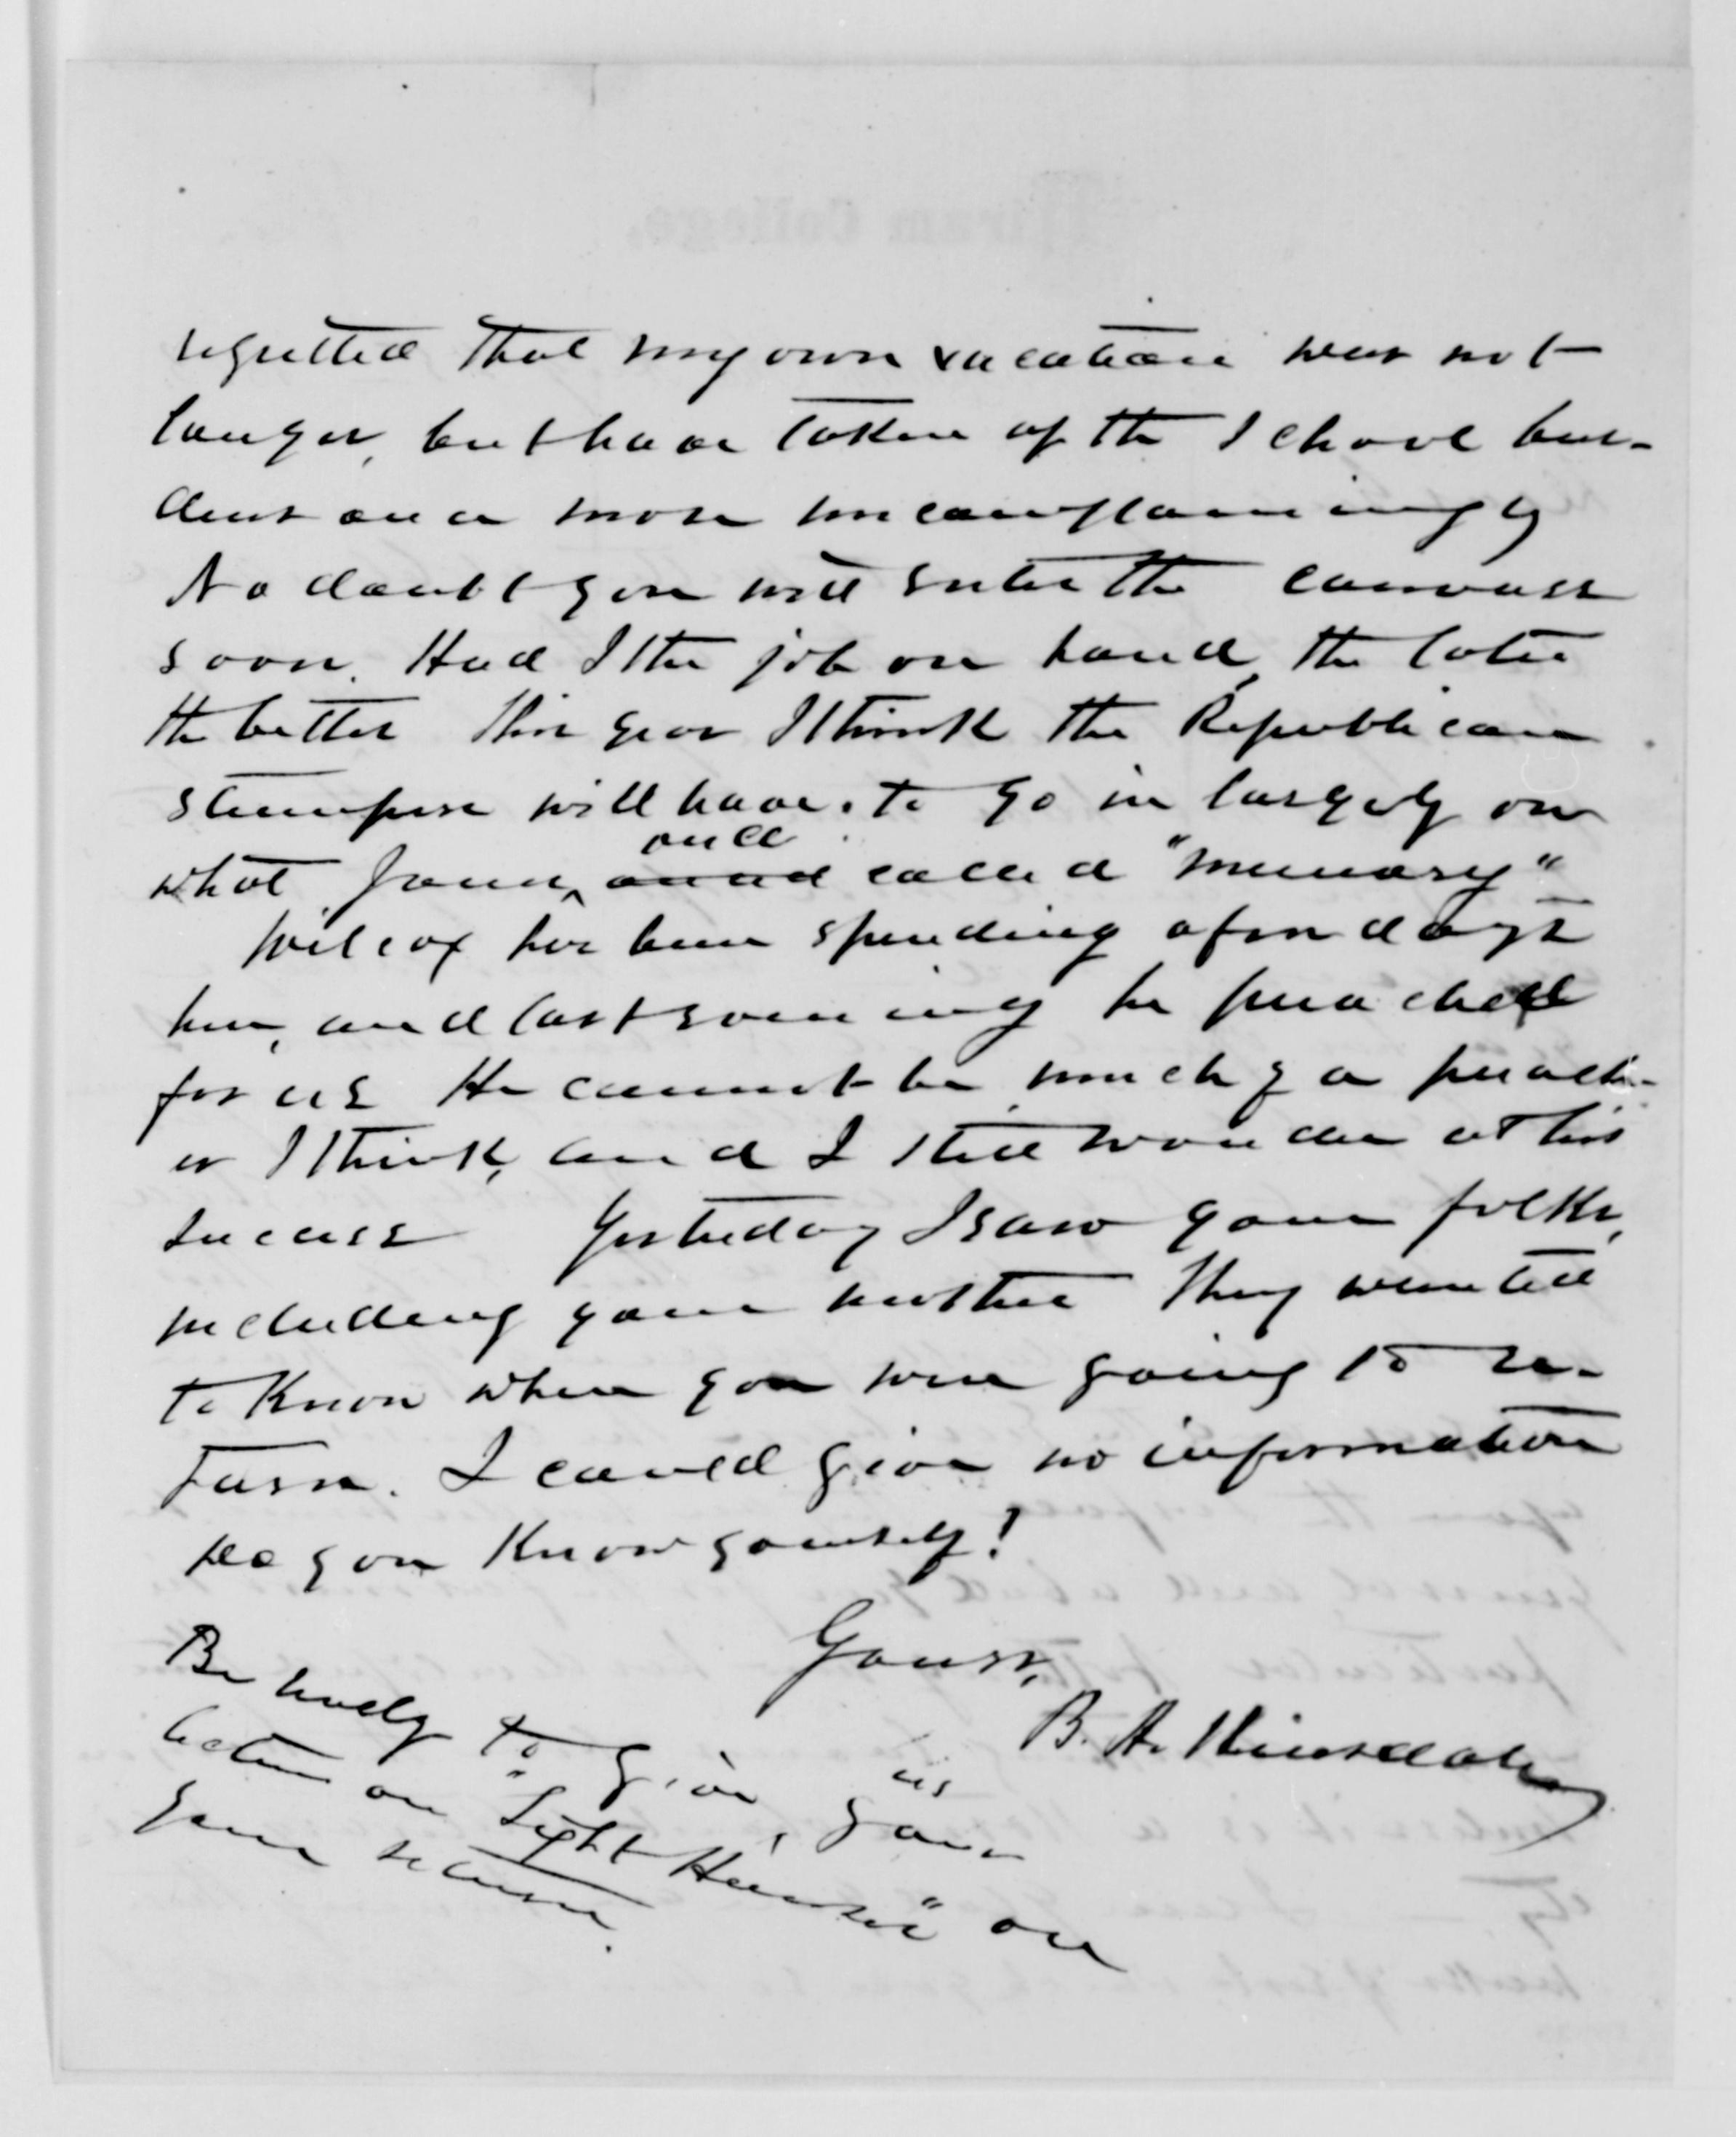 regretted that my own vacation was not
longer, but have taken up the school bur-
dens once more uncomplainingly
No doubt you will enter the canvass
soon. Had I the job on hand, the later
the better This year I think the Republican
stumpers will have to go in largely on
what Jones, once called "memory"
Wilcox has been spending a few days
here, and last evening he preached
for us He cannot be much of a preach-
er I think, and I still wonder at his
success Yesterday I saw your folks,
including your mother They wanted
to know when you were going to re-
turn. I could give no information
Do you know yourself?
Yours,
B. A. Hinsdale
Be ready to give us your
lecture on "Light Houses" on
your return.
Hiram College.